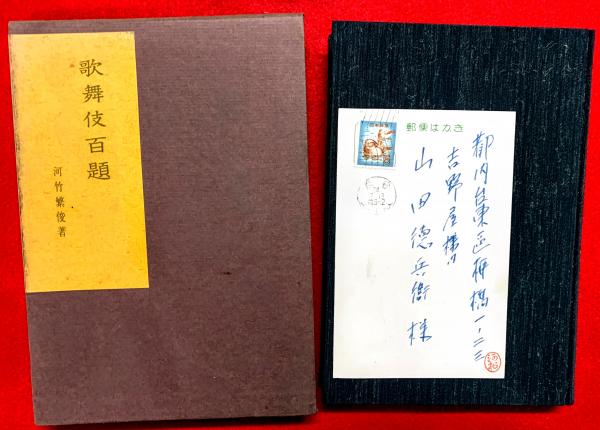 歌舞伎百題
河竹繁俊著
郵便はがき
都内台東区柳橋一ノ二三
吉野屋様内
山田徳兵衛様